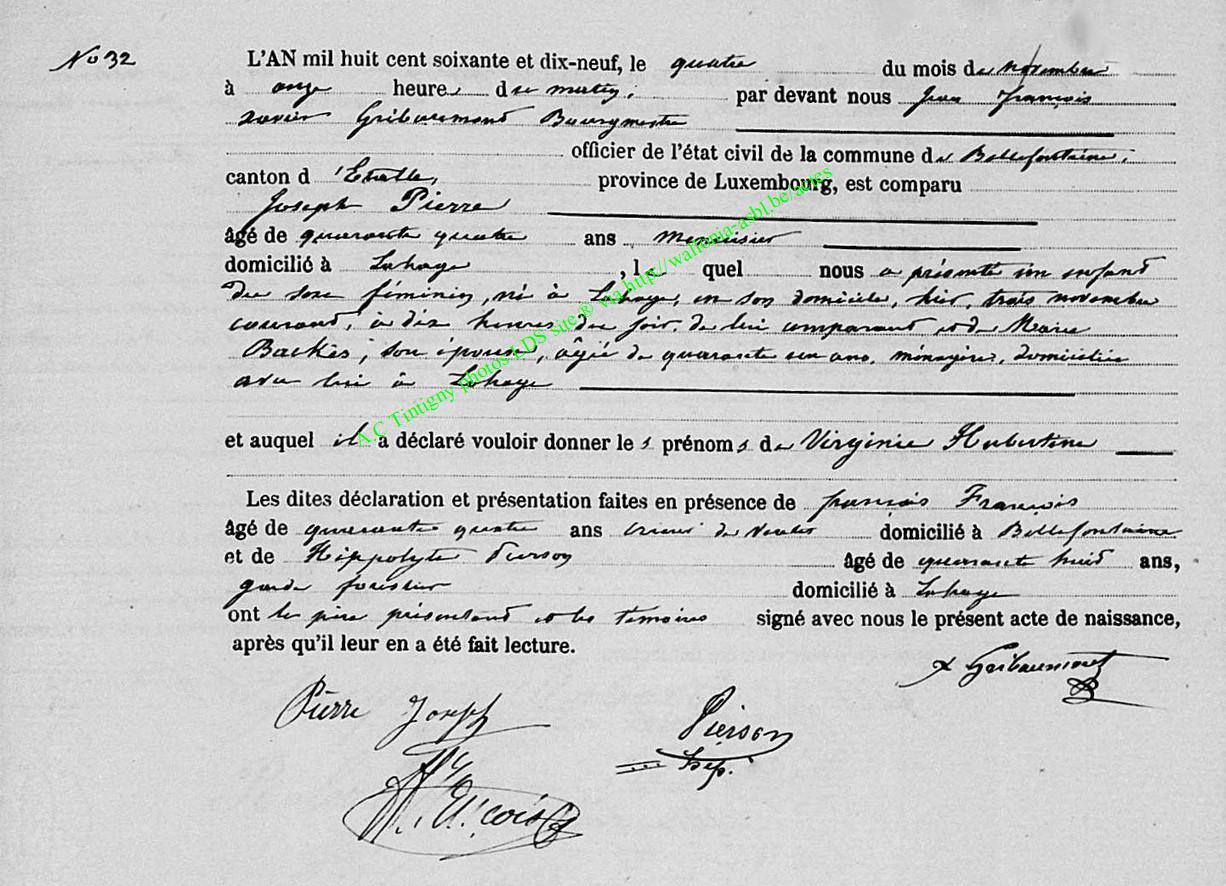 No 32
L'AN mil huit cent soixante et dix-neuf, le quatre du mois de novembre
à onze heures du matin, par devant nous Jean François
Xavier Gribaumont Bourgmestre
officier de l'état civil de la commune de Bellefontaine,
canton d'Etalle, province de Luxembourg, est comparu
Joseph Pierre
âgé de quarante quatre ans menuisier
domicilié à Lahage, lequel nous a présenté un enfant
du sexe féminin, né à Lahage, en son domicile, hier, trois novembre
courant, à dix heures du soir, de lui comparant et de Marie
Backès, son épouse, âgée de quarante un ans, ménagère, domiciliée
avec lui à Lahage
et auquel il a déclaré vouloir donner les prénoms de Virginie Hubertine
Les dites déclaration et présentation faites en présence de françois François
âgé de quarante quatre ans domicilié à Bellefontaine
et de Hippolyte Pierson âgé de quarante huit ans,
garde forestier domicilié à Lahage
ont le père présentant et les témoins signé avec nous le présent acte de naissance,
après qu'il leur en a été fait lecture.
X Gribaumont
Pierre Joseph
Pierson
hip.
A.C Tintigny photos LDS site ® via http://wallonia-asbl.be/actes